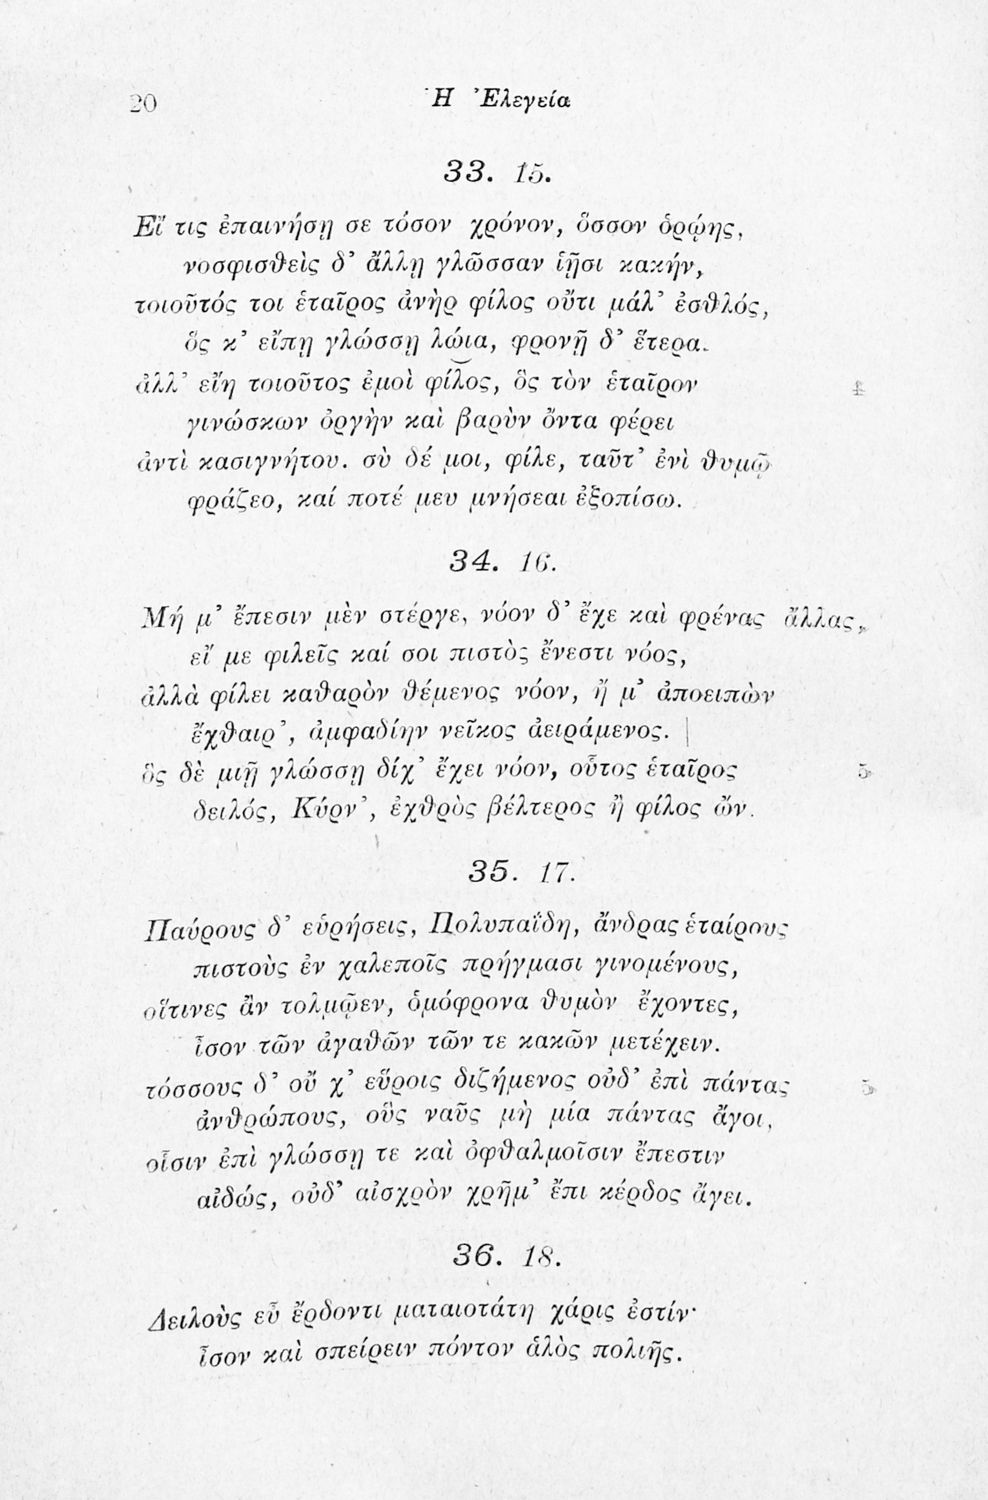 20 Ἡ Ἐλεγεία
33. 15.
Εἴ τις ἐπαινήσῃ σε τόσον χρόνον, ὅσσον ὁρῴης,
νοσφισθεὶς δ’ ἄλλῃ γλῶσσαν ἱῇσι κακήν,
τοιοῦτός τοι ἑταῖρος ἀνὴρ φίλος οὔτι μάλ’ ἐσθλός,
ὅς κ’ εἴπῃ γλώσσῃ λώια, φρονῇ δ’ ἕτερα.
ἀλλ’ εἴη τοιοῦτος ἐμοὶ φίλος, ὃς τὸν ἑταῖρον
γινώσκων ὀργὴν καὶ βαρὺν ὄντα φέρει
ἀντὶ κασιγνήτου. σὺ δέ μοι, φίλε, ταῦτ’ ἐνὶ θυμῷ
φράζεο, καί ποτέ μευ μνήσεαι ἐξοπίσω.
34. 16.
Μή μ’ ἔπεσιν μὲν στέργε, νόον δ’ ἔχε καὶ φρένας ἄλλας,
εἴ με φιλεῖς καί σοι πιστὸς ἔνεστι νόος,
ἀλλὰ φίλει καθαρὸν θέμενος νόον, ἤ μ’ ἀποειπὼν
ἔχθαιρ’, ἀμφαδίην νεῖκος ἀειράμενος.
ὃς δὲ μιῇ γλώσσῃ δίχ’ ἔχει νόον, οὗτος ἑταῖρος 5
δειλός, Κύρν’, ἐχθρὸς βέλτερος ἢ φίλος ὤν.
35. 17.
Παύρους δ’ εὑρήσεις, Πολυπαΐδη, ἄνδρας ἑταίρους
πιστοὺς ἐν χαλεποῖς πρήγμασι γινομένους,
οἵτινες ἂν τολμῷεν, ὁμόφρονα θυμὸν ἔχοντες,
ἶσον τῶν ἀγαθῶν τῶν τε κακῶν μετέχειν.
τόσσους δ’ οὔ χ’ εὕροις διζήμενος οὐδ’ ἐπὶ πάντας 5
ἀνθρώπους, οὓς ναῦς μὴ μία πάντας ἄγοι,
οἷσιν ἐπὶ γλώσσῃ τε καὶ ὀφθαλμοῖσιν ἔπεστιν
αἰδώς, οὐδ’ αἰσχρὸν χρῆμ’ ἔπι κέρδος ἄγει.
36. 18.
Δειλοὺς εὖ ἔρδοντι ματαιοτάτη χάρις ἐστίν·
ἶσον καὶ σπείρειν πόντον ἁλὸς πολιῆς.